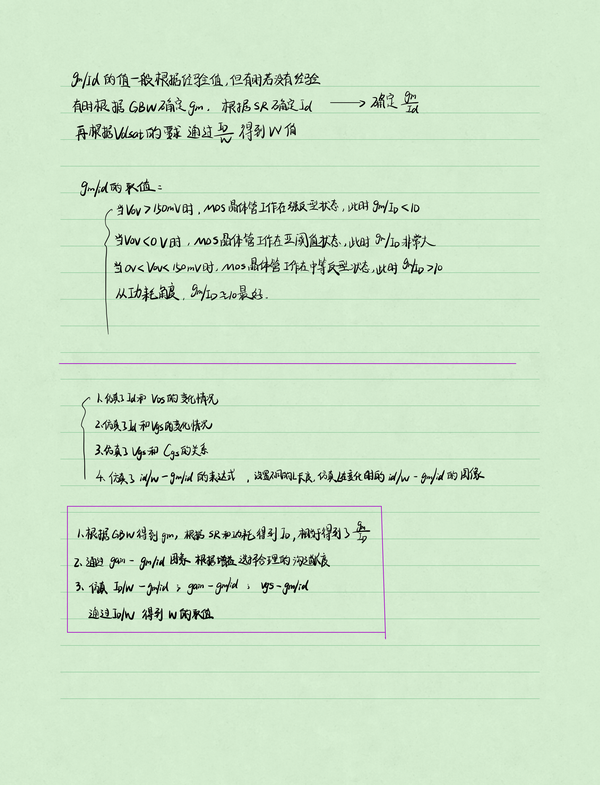 gm/id 的值一般根据经验值,但有时若没有经验
有时根据 GBW 确定 gm. 根据 SR 确定 Id ⟶ 确定 gm/Id
再根据Vdsat的要求 通过 ID/W 得到 W 值
gm/id 的取值:
当 Vov > 150mV 时, MOS 晶体管工作在强反型状态, 此时 gm/ID < 10
当 Vov < 0 V 时, MOS 晶体管工作在亚阈值状态, 此时 gm/ID 非常大
当 0V < Vov < 150mV 时, MOS 晶体管工作在中等反型状态, 此时 gm/ID > 10
从功耗角度, gm/ID ≈10 最好.
1. 仿真了 Id 和 Vds 的变化情况
2. 仿真了 Id 和 Vgs 的变化情况
3. 仿真了 Vgs 和 Cgs 的关系
4. 仿真了 id/w - gm/id 的表达式 , 设置不同的L长度. 仿真L在变化时的 id/w - gm/id 的图像
1. 根据 GBW 得到 gm, 根据 SR 和功耗得到 ID, 相当于得到了 gm/ID
2. 通过 gain - gm/id 图像 根据增益 选择合理的沟道长度
3. 仿真 ID/W - gm/id ; gain - gm/id ; vgs - gm/id
通过 ID/W 得到 W 的取值